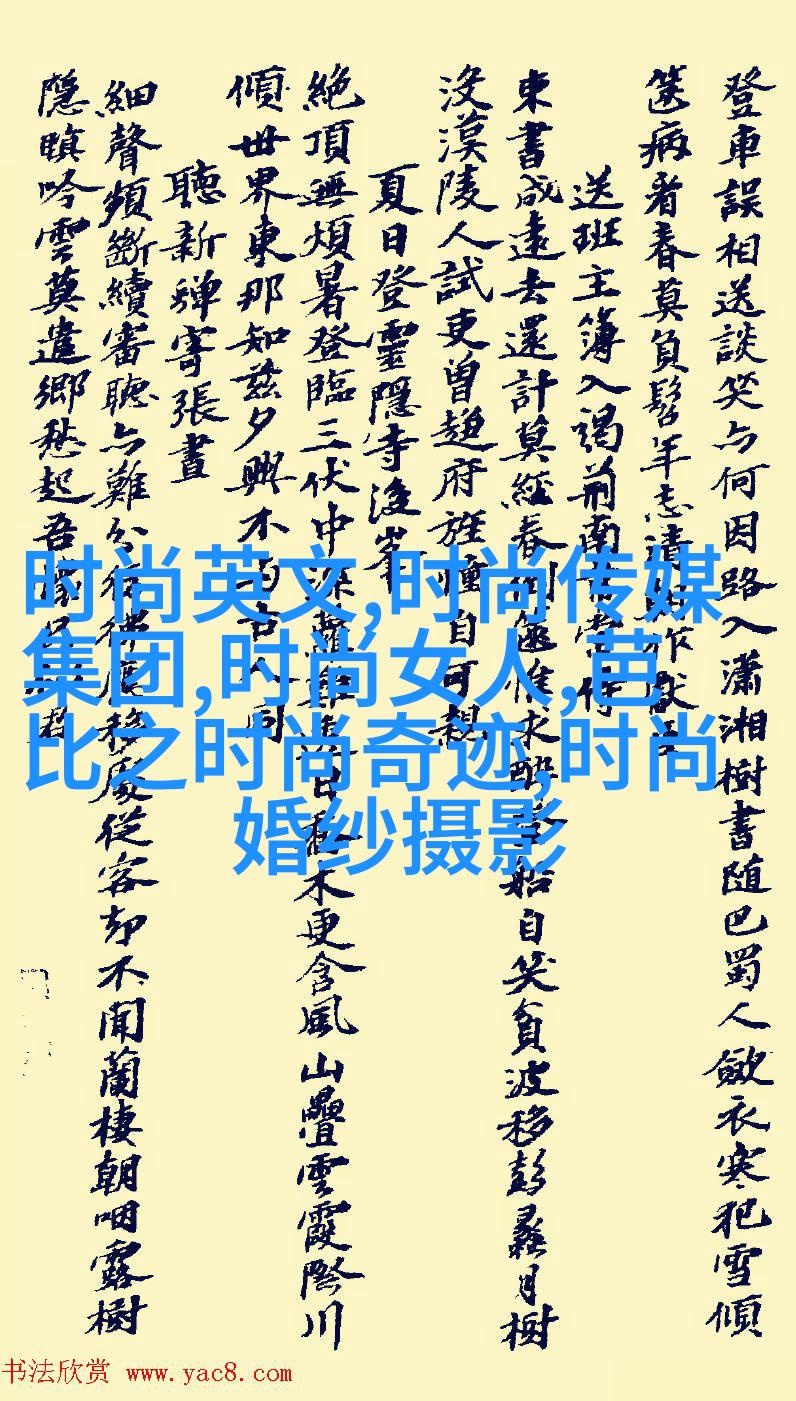 登車誤相送談笑亦何因路入瀟湘樹書隨巴蜀人斂衣寒犯雪傾
篋病看春莫負髫年志清
送班主簿入謁荊南
東書成遠去還計莫經春倒篋惟求醉船自笑貧波移彭蠡月樹
沒漢陵人試吏曾趨府旌幢自可親
夏日登靈隱寺後峯
絕頂無煩暑登臨三伏中深蘿難木更含風山疊雲霞際川
傾世界東那知茲夕興不與古人同
聽新蟬寄張晝
細聲頻斷續審聽亦難分移處從客却不聞蘭棲朝咽露樹
隱暝吟雲莫遣鄉愁起吾
时尚英文,时尚传媒
集团,时尚女人,芭
比之时尚奇迹,时尚
婚纱摄影
书法欣赏 www.yac8.com